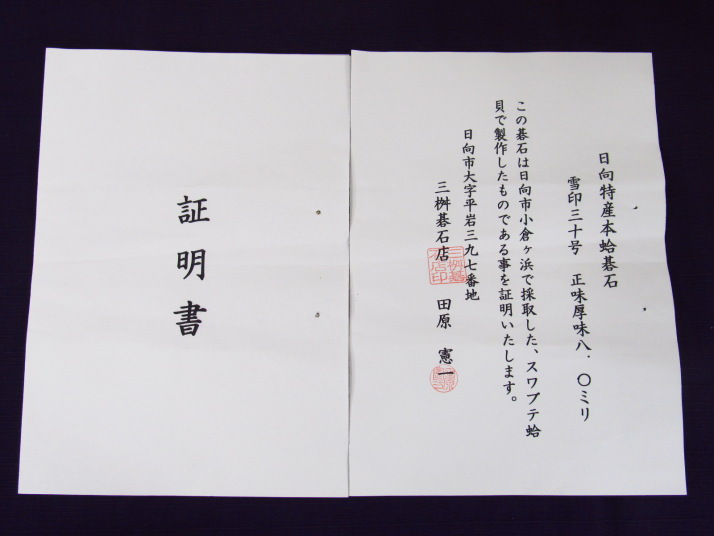 日向特産本蛤碁石
雪印三十号　正味厚味八・〇ミリ
この碁石は日向市小倉ヶ浜で採取した、スワブテ蛤
貝で製作したものである事を証明いたします。
日向市大字平岩三九七番地
三桝碁石店　田原　憲一
三桝碁石店印
証明書